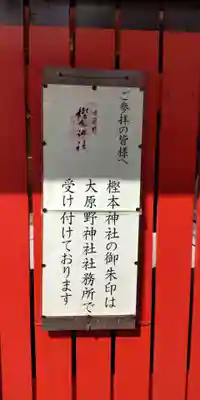 ご参拝の皆様へ
樫本神社
樫本神社の御朱印は
大原野神社社務所で
受け付けております